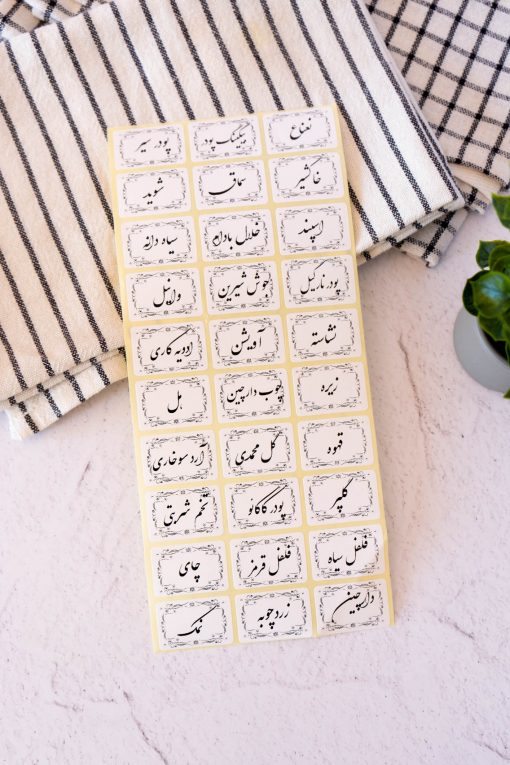 نعناع
بیکینگ پودر
پودر سیر
خاکشیر
سماق
شوید
اسپند
خلال بادام
سیاه دانه
پودر نارگیل
جوش شیرین
وانیل
نشاسته
آویشن
ادویه کاری
زیره
چوب دارچین
هل
قهوه
گل محمدی
آرد سوخاری
گلپر
پودر کاکائو
تخم شربتی
فلفل سیاه
فلفل قرمز
چای
دارچین
زردچوبه
نمک